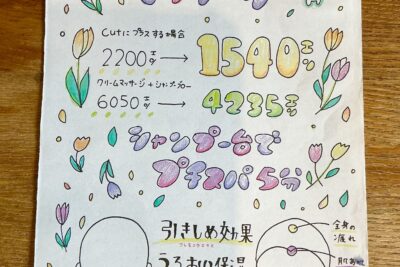 Cutにプラスする場合
2200エン → 1540エン
クリームマッサージ+シャンプーブロー
6050エン → 4235エン
シャンプー台で
プチスパ 5分
引きしめ効果
うるおい保湿
全身の
疲れ